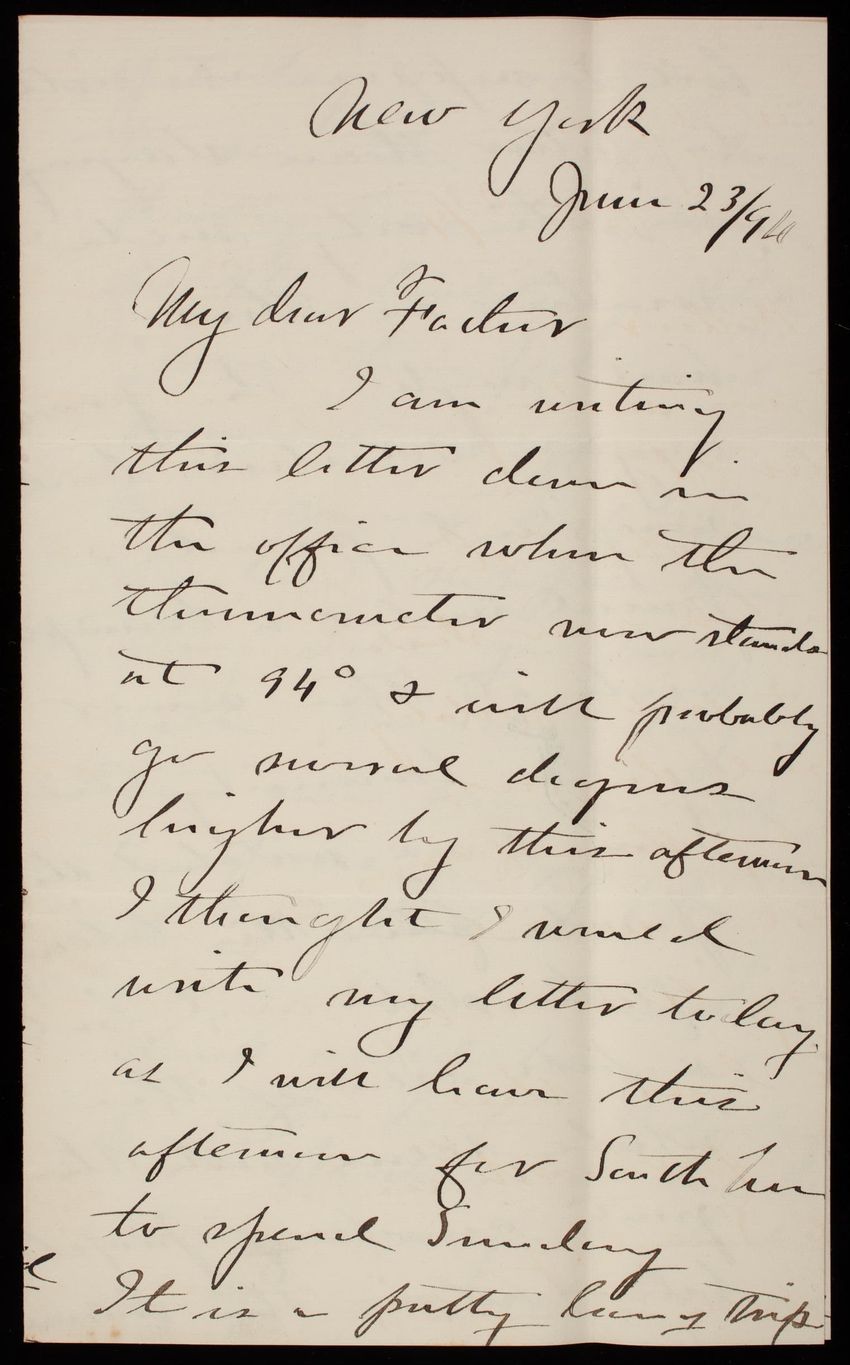 New York
June 23/94
My dear Father
I am writing
this letter down in
the office where the
thermometer now stands
at 94° & will probably
go several degrees
higher by this afternoon
I thought I would
write my letter today
as I will leave this
afternoon for South
to spend Sunday
It is a pretty long trip